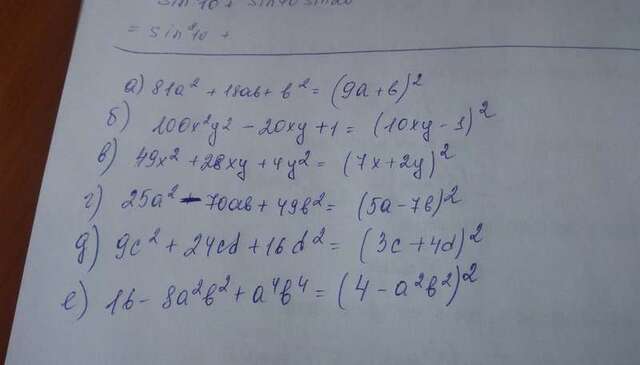 sin²10 + sin40 sin20
= sin²10 +
а) 81a² + 18ab + b² = (9a + b)²
б) 100x²y² - 20xy + 1 = (10xy - 1)²
в) 49x² + 28xy + 4y² = (7x + 2y)²
г) 25a² - 70ab + 49b² = (5a - 7b)²
д) 9c² + 24cd + 16d² = (3c + 4d)²
е) 16 - 8a²b² + a⁴b⁴ = (4 - a²b²)²